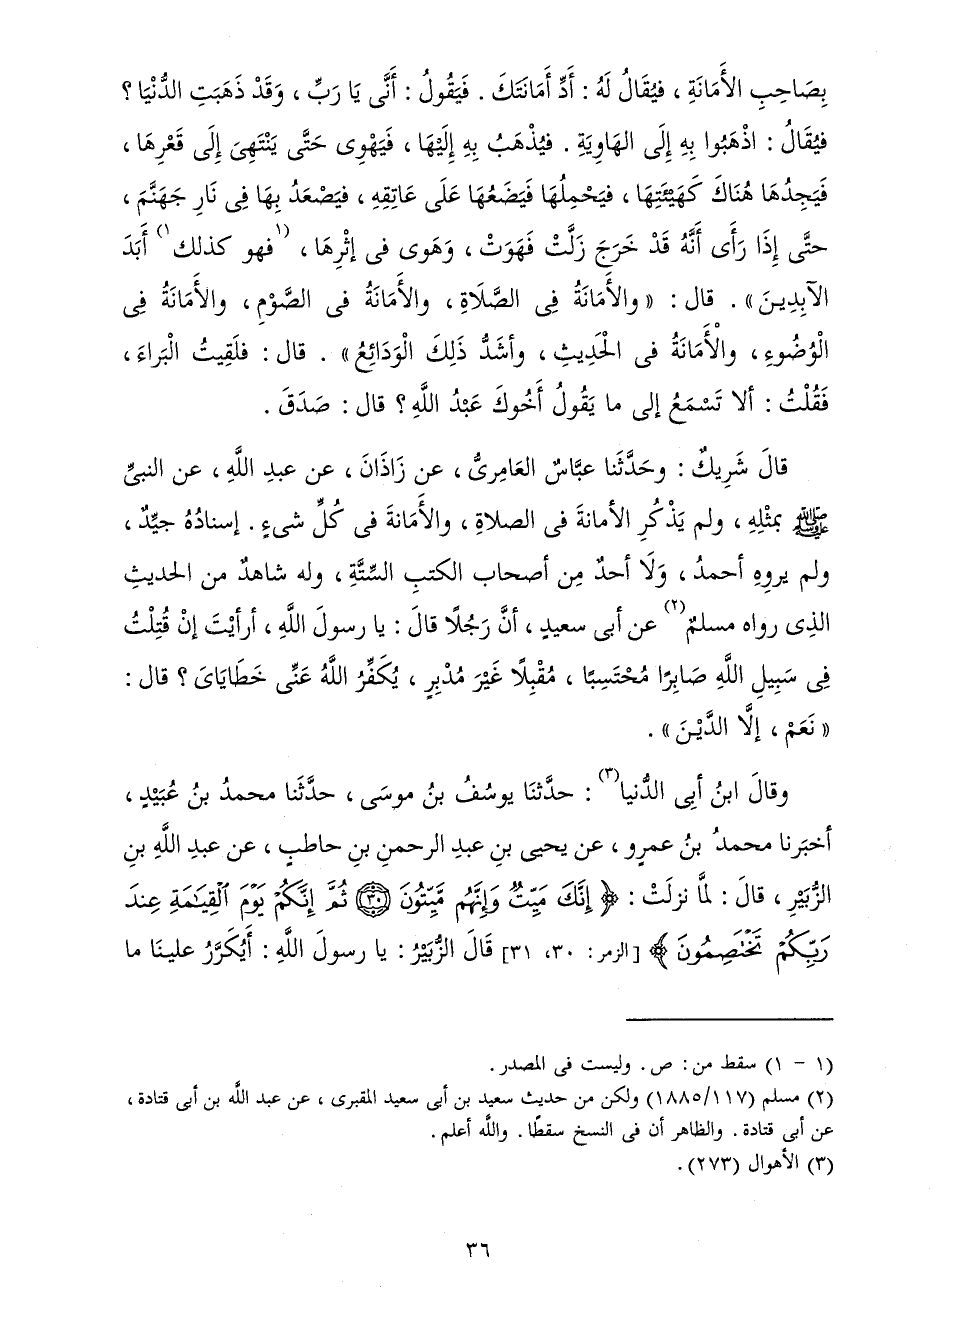 بِصَاحِبِ الأَمَانَةِ ، فيُقَالُ لَهُ : أَدِّ أَمَانَتَكَ . فَيَقُولُ : أَنَّى يَا رَبِّ ، وَقَدْ ذَهَبَتِ الدُّنْيَا ؟
فيُقَالُ : اذْهَبُوا بِهِ إِلَى الهَاوِيَةِ . فيُذْهَبُ بِهِ إِلَيْهَا ، فَيَهْوِى حَتَّى يَنْتَهِىَ إِلَى قَعْرِهَا ،
فَيَجِدُهَا هُنَاكَ كَهَيْئَتِهَا ، فيَحْمِلُهَا فَيَضَعُهَا عَلَى عَاتِقِهِ ، فيَصْعَدُ بِهَا فِى نَارِ جَهَنَّمَ ،
حتَّى إِذَا رَأَى أَنَّهُ قَدْ خَرَجَ زَلَّتْ فَهَوَتْ ، وَهَوى فى إثْرِهَا ، (١فهو كذلك١) أَبَدَ
الآبِدِينَ » . قال : « والأَمَانَةُ فِى الصَّلَاةِ ، والأَمَانَةُ فى الصَّوْمِ ، والأَمَانَةُ فِى
الْوُضُوءِ ، والْأَمَانَةُ فى الحَدِيثِ ، وأشَدُّ ذَلِكَ الْوَدَائِعُ » . قال : فلَقِيتُ الْبَراءَ ،
فَقُلْتُ : ألا تَسْمَعُ إلى ما يَقُولُ أَخُوكَ عَبْدُ اللَّهِ ؟ قال : صَدَقَ .
قالَ شَرِيكٌ : وحَدَّثَنا عبَّاسٌ العَامِرِىُّ ، عن زَاذَانَ ، عن عبدِ اللَّهِ ، عن النبىِّ
ﷺ بمثْلِهِ ، ولم يَذْكُرِ الأمانةَ فى الصلاةِ ، والأَمَانَةَ فى كُلِّ شىءٍ . إسنادُهُ جيِّدٌ ،
ولم يروِهِ أحمدُ ، وَلَا أحدٌ مِن أصحاب الكتبِ السِّتَّةِ ، وله شاهدٌ من الحديثِ
الذى رواه مسلمٌ(٢) عن أبى سعيدٍ ، أنَّ رَجُلًا قالَ : يا رسولَ اللَّهِ ، أرأيْتَ إنْ قُتِلْتُ
فِى سَبِيلِ اللَّهِ صَابِرًا مُحْتَسِبًا ، مُقْبِلًا غَيْرَ مُدْبِرٍ ، يُكَفِّرُ اللَّهُ عَنِّى خَطَايَاىَ ؟ قال :
« نَعَمْ ، إلَّا الدَّيْنَ » .
وقالَ ابنُ أبِى الدُّنيا(٣) : حدَّثنَا يوسُفُ بنُ موسَى ، حدَّثَنا محمدُ بنُ عُبَيْدٍ ،
أخبَرنا محمدُ بنُ عمرٍو ، عن يحيى بنِ عبدِ الرحمنِ بنِ حاطبٍ ، عن عبدِ اللَّهِ بنِ
الزُّبَيْرِ ، قالَ : لمَّا نزلَتْ : ﴿ إِنَّكَ مَيِّتٌ وَإِنَّهُم مَّيِّتُونَ ٣٠ ثُمَّ إِنَّكُمْ يَوْمَ الْقِيَٰمَةِ عِندَ
رَبِّكُمْ تَخْتَصِمُونَ ﴾ [الزمر : ٣٠، ٣١] قَالَ الزُّبَيْرُ : يا رسولَ اللَّهِ : أَيُكَرَّرُ علينَا ما
(١ - ١) سقط من : ص . وليست فى المصدر .
(٢) مسلم (١٨٨٥/١١٧) ولكن من حديث سعيد بن أبى سعيد المقبرى ، عن عبد اللَّه بن أبى قتادة ،
عن أبى قتادة . والظاهر أن فى النسخ سقطًا . واللَّه أعلم .
(٣) الأهوال (٢٧٣) .
٣٦